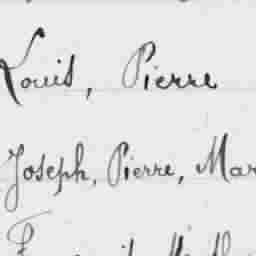 Louis, Pierre
Joseph, Pierre, Mar